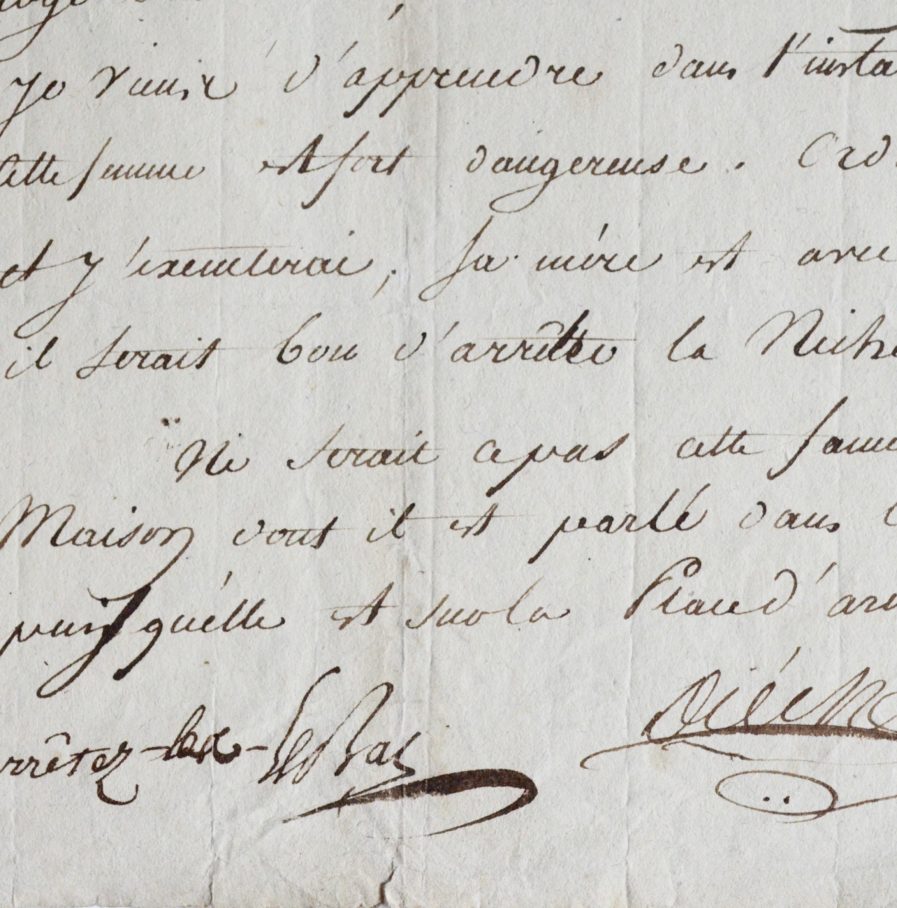 Je viens d'apprendre dans l'insta
Cette femme est fort dangereuse. Ord
et j'exécuterai; sa mère est avec
il serait bon d'arrêter la
Ne serait ce pas cette fame
Maison dont il est parlé dans l
puisqu'elle est sur la Place d'ar
rrêtez-les - Le Bas